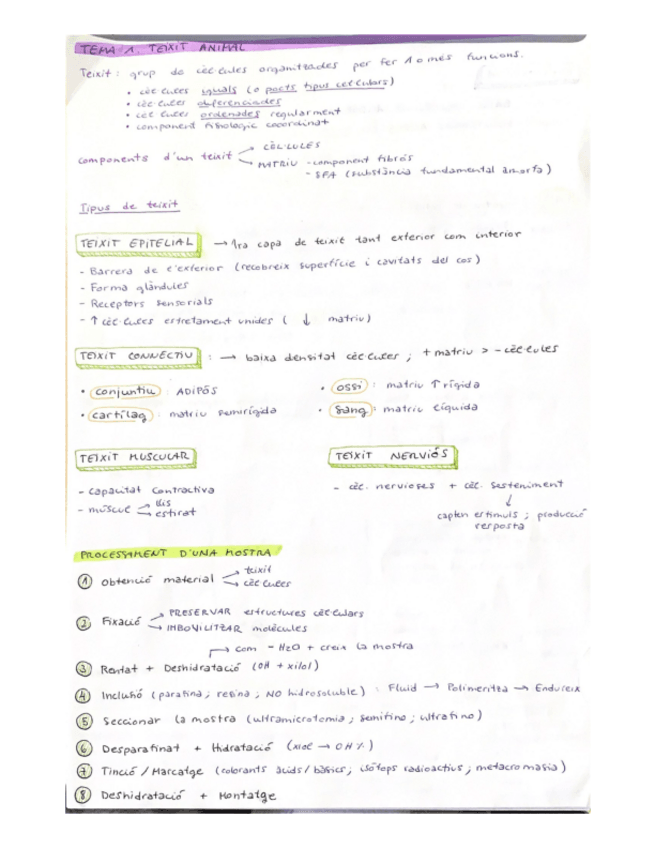 TEMA 1. TEIXIT ANIMAL
Teixit: grup de cèl·lules organitzades per fer 1 o més funcions.
• cèl·lules iguals (o pocs tipus cel·lulars)
• cèl·lules diferenciades
• cèl·lules ordenades regularment
• component fisiologic coordinat
components d'un teixit → CÈL·LULES
→ MATRIU - component fibrós
- SFA (substància fundamental amorfa)
Tipus de teixit
TEIXIT EPITELIAL → 1ra capa de teixit tant exterior com interior
- Barrera de l'exterior (recobreix superfície i cavitats del cos)
- Forma glàndules
- Receptors sensorials
- ↑ cèl·lules estretament unides ( ↓ matriu)
TEIXIT CONNECTIU : → baixa densitat cèl·lules ; + matriu > - cèl·lules
• conjuntiu : ADIPÓS
• ossi : matriu ↑ rígida
• cartílag : matriu semirígida
• Sang : matriu líquida
TEIXIT MUSCULAR
TEIXIT NERVIÓS
- capacitat contractiva
- múscul → llis
→ estriat
- cèl. nervioses + cèl. sosteniment
↓
capten estímuls ; producció
resposta
PROCESSAMENT D'UNA MOSTRA
1 Obtenció material → teixit
→ cèl·lules
2 Fixació → PRESERVAR estructures cèl·lulars
→ IMBOVILITZAR molècules
→ com - H2O + creix la mostra
3 Rentat + Deshidratació (OH + xilol)
4 Inclusió (parafina ; resina ; NO hidrosoluble) : Fluid → Polimeritza → Endureix
5 Seccionar la mostra (ultramicrotomia ; semifino ; ultrafino)
6 Desparafinat + Hidratació (xilol → OH %)
7 Tinció / Marcatge (colorants àcids / bàsics ; isòtops radioactius ; metacromasia)
8 Deshidratació + Montatge